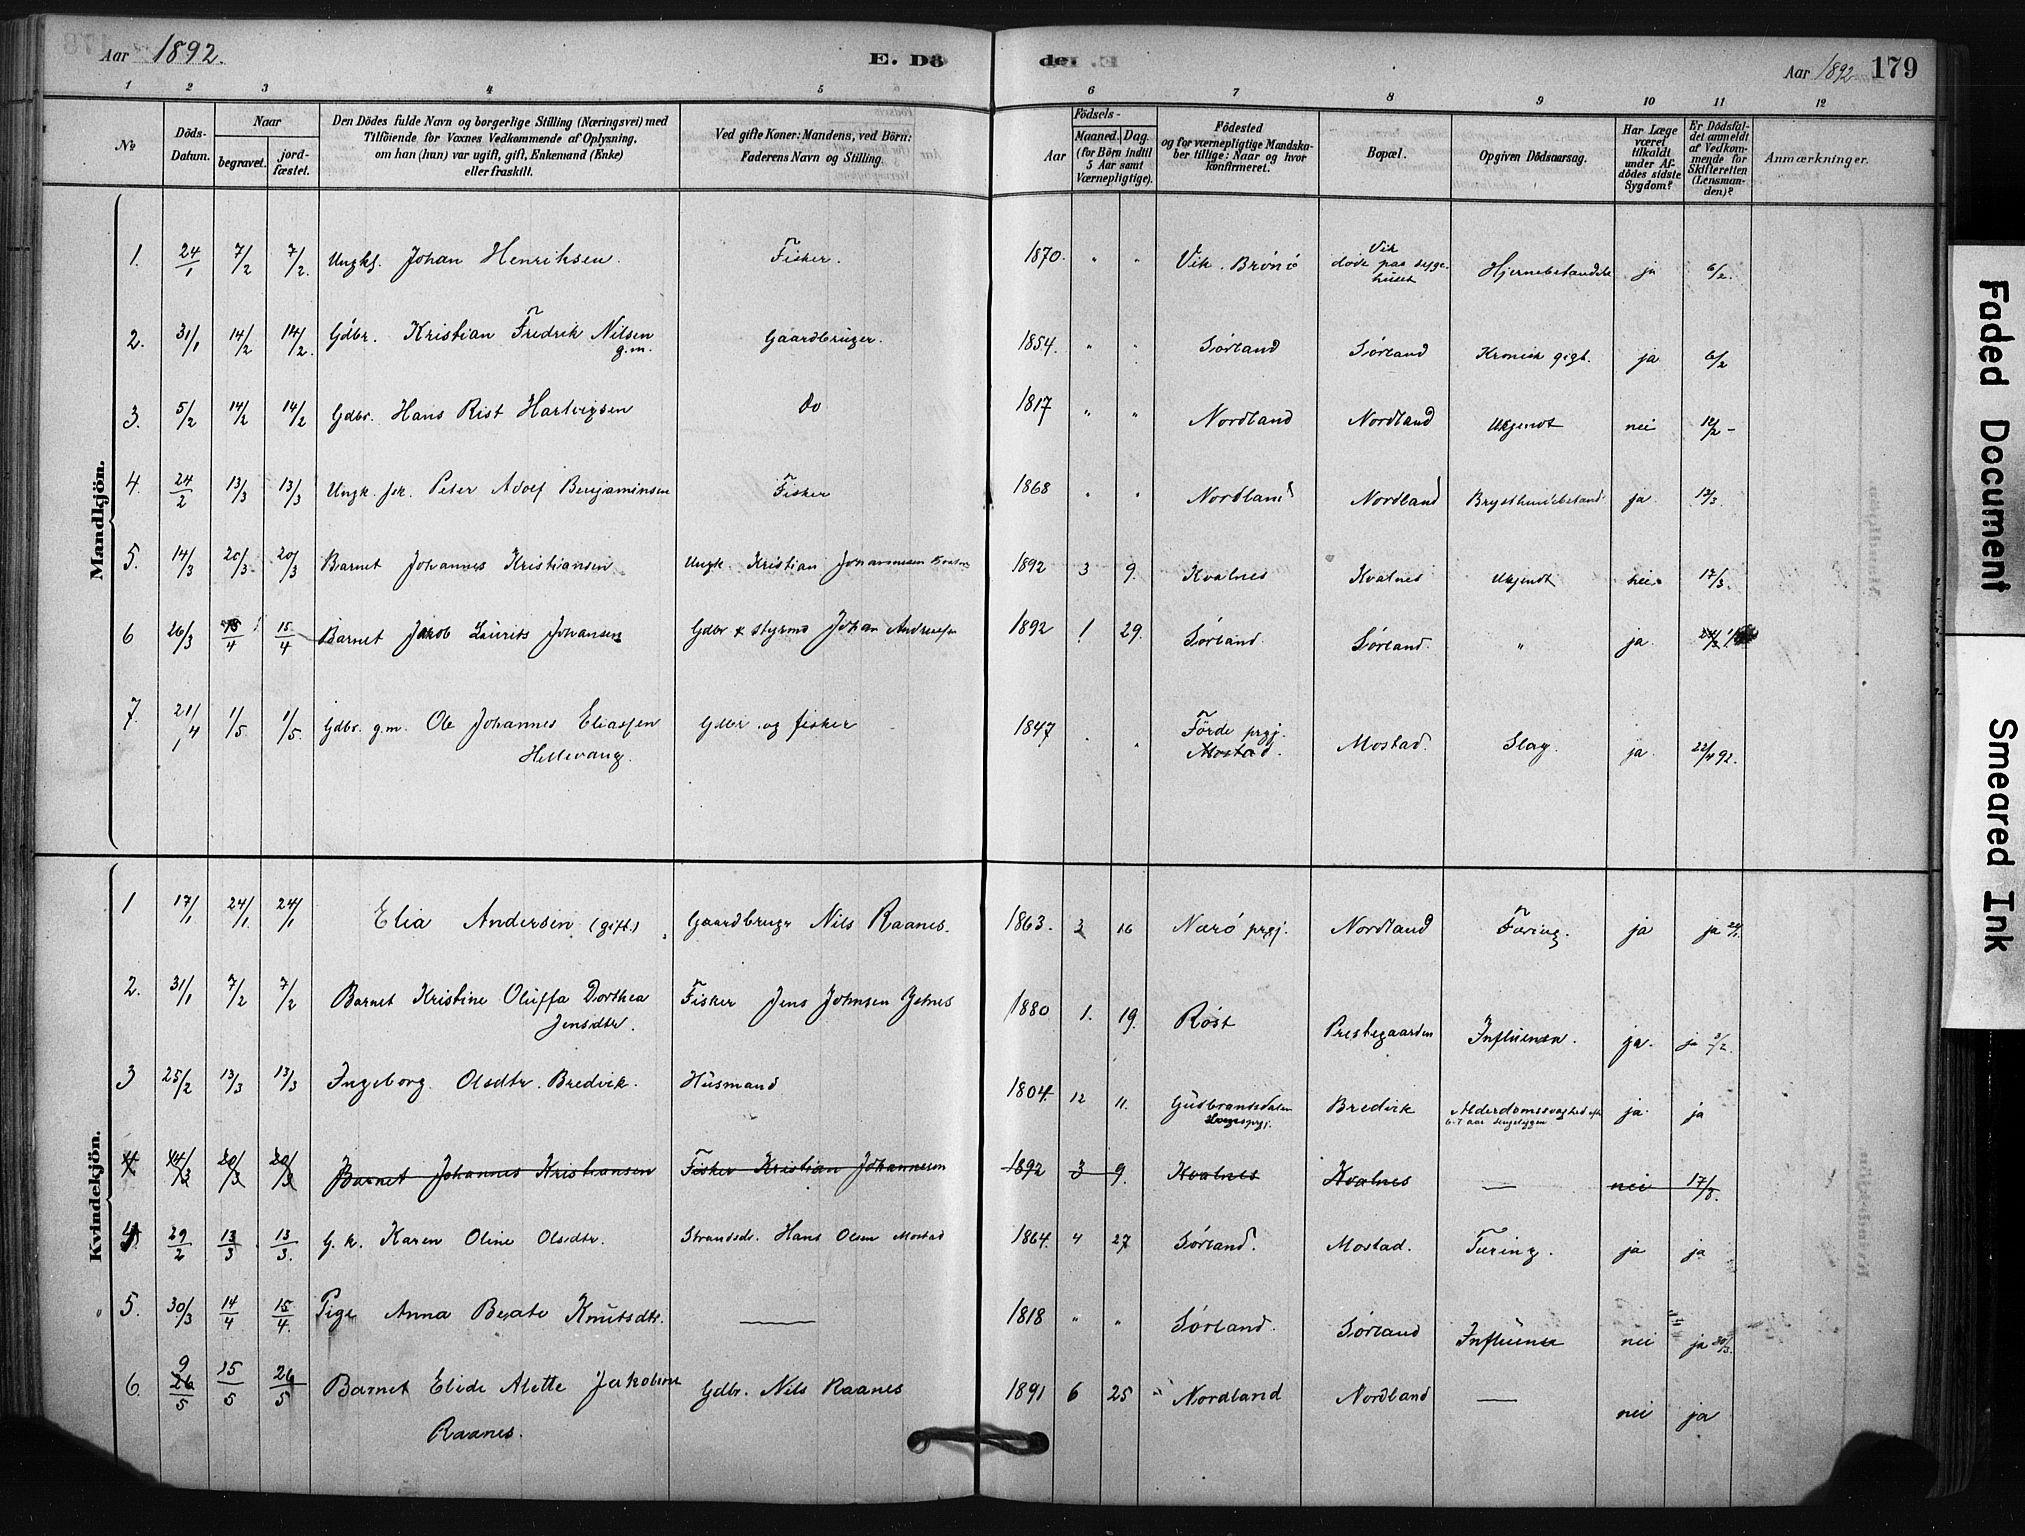 Aar 1892. E. Dö
de E. Aar 1892 179
1 2 3 4 5 6
6 7 8 9 10 11 12
No
Döds-
Datum.
Naar
begravet.
jord-
fæstet.
Den Dödes fulde Navn og borgerlige Stilling (Næringsvei) med
Tilföiende for Voxnes Vedkommende af Oplysning,
om han (hun) var ugift, gift, Enkemand (Enke)
eller fraskilt.
Ved gifte Koner: Mandens, ved Börn:
Faderens Navn og Stilling.
Födsels-
Aar
Maaned.
Dag.
(for Börn indtil
5 Aar samt
Værnepligtige).
Födested
og for værnepligtige Mandska-
ber tillige: Naar og hvor
konfirmeret.
Bopæl.
Opgiven Dödsaarsag.
Har Læge
været
tilkaldt
under Af-
dödes sidste
Sygdom?
Er Dödsfal-
det anmeldt
af Vedkom-
mende for
Skifteretten
(Lensman-
den)?
Anmærkninger.
Mandkjön.
1. 24/1 7/2 7/2. Ungkf. Johan Henriksen. Fisker. 1870. " " Vik. Brönö Vik
döde paa syge-
huset ja 6/2
2. 31/1 14/2 14/2. Gdbr. Kristian Fredrik Nilsen
g.m. Gaardbruger. 1854. " " Sörland Sörland Kronisk gigt. ja 6/2
3. 5/2 14/2 14/2 Gdbr. Hans Rist Hartvigsen Do 1817 " " Nordland Nordland Ukjendt nei 12/2 -
4. 24/2 13/3 13/3 Ungk. Peter Adolf Benjaminsen Fisker 1868 " " Nordland Nordland ja 13/3.
5. 14/3 20/3 20/3 Barnet Johannes Kristiansen Ungk. Kristian Johannesen 1892 3 9. Kvalnes Kvalnes Ukjendt nei 17/3.
6 26/3 15/4 15/4 Barnet Jacob Laurits Johansen Gdbr & styrmd Johan Andreasen 1892 1 29. Sörland. Sörland. " ja.
7. 21/4 1/5 1/5. Gdbr. g.m. Ole Johannes Eliassen
Hellevang. Gdbr. og fisker 1847 . " Förde prgj.
Mostad. Mostad. Slag. ja. 22/4 92.
Kvindekjön.
1 17/1 24/1. 24/1 Elia Andersen (gift.) Gaardbrugr Nils Raanes. 1863. 3 16 Nærö prgj. Nordland Tæring. ja ja 24/1.
2. 31/1 7/2 7/2 Barnet Kristine Oluffa Dorthea
Jensdtr. Fisker Jens Johnsen 1880 1. 19. Röst Prestegaarden Influensa. ja. ja 3/2.
3 25/2 13/3 13/3 Ingeborg Olsdtr. Bredvik. Husmand 1804. 12 11. Gudbrandsdalen
Bredvik Alderdomssvaghed efter
6-7 aar sengeliggen ja. ja
4 14/3 20/3 20/3 Barnet Johannes Kristiansen Fisker Kristian Johannesen 1892 3 9. Kvalnes Kvalnes — nei 17/3.
4. 29/2 13/3 13/3. G. k. Karen Oline Olsdtr. Strandsdr. Hans Olsen Mostad 1864. 4 27 Sörland. Mostad. Tæring. ja ja
" 5. 30/3 14/4 15/4. Pige Anna Berate Knutsdtr. — 1818 " " Sörland. Sörland Influensa nei ja 30/3.
6. 9 26/5 15/5 26/5 Barnet Elide Alette Jakobine
Raanes. Gdbr. Nils Raanes 1891 6 25 " Nordland Nordland — nei ja
Faded Document
Smeared Ink